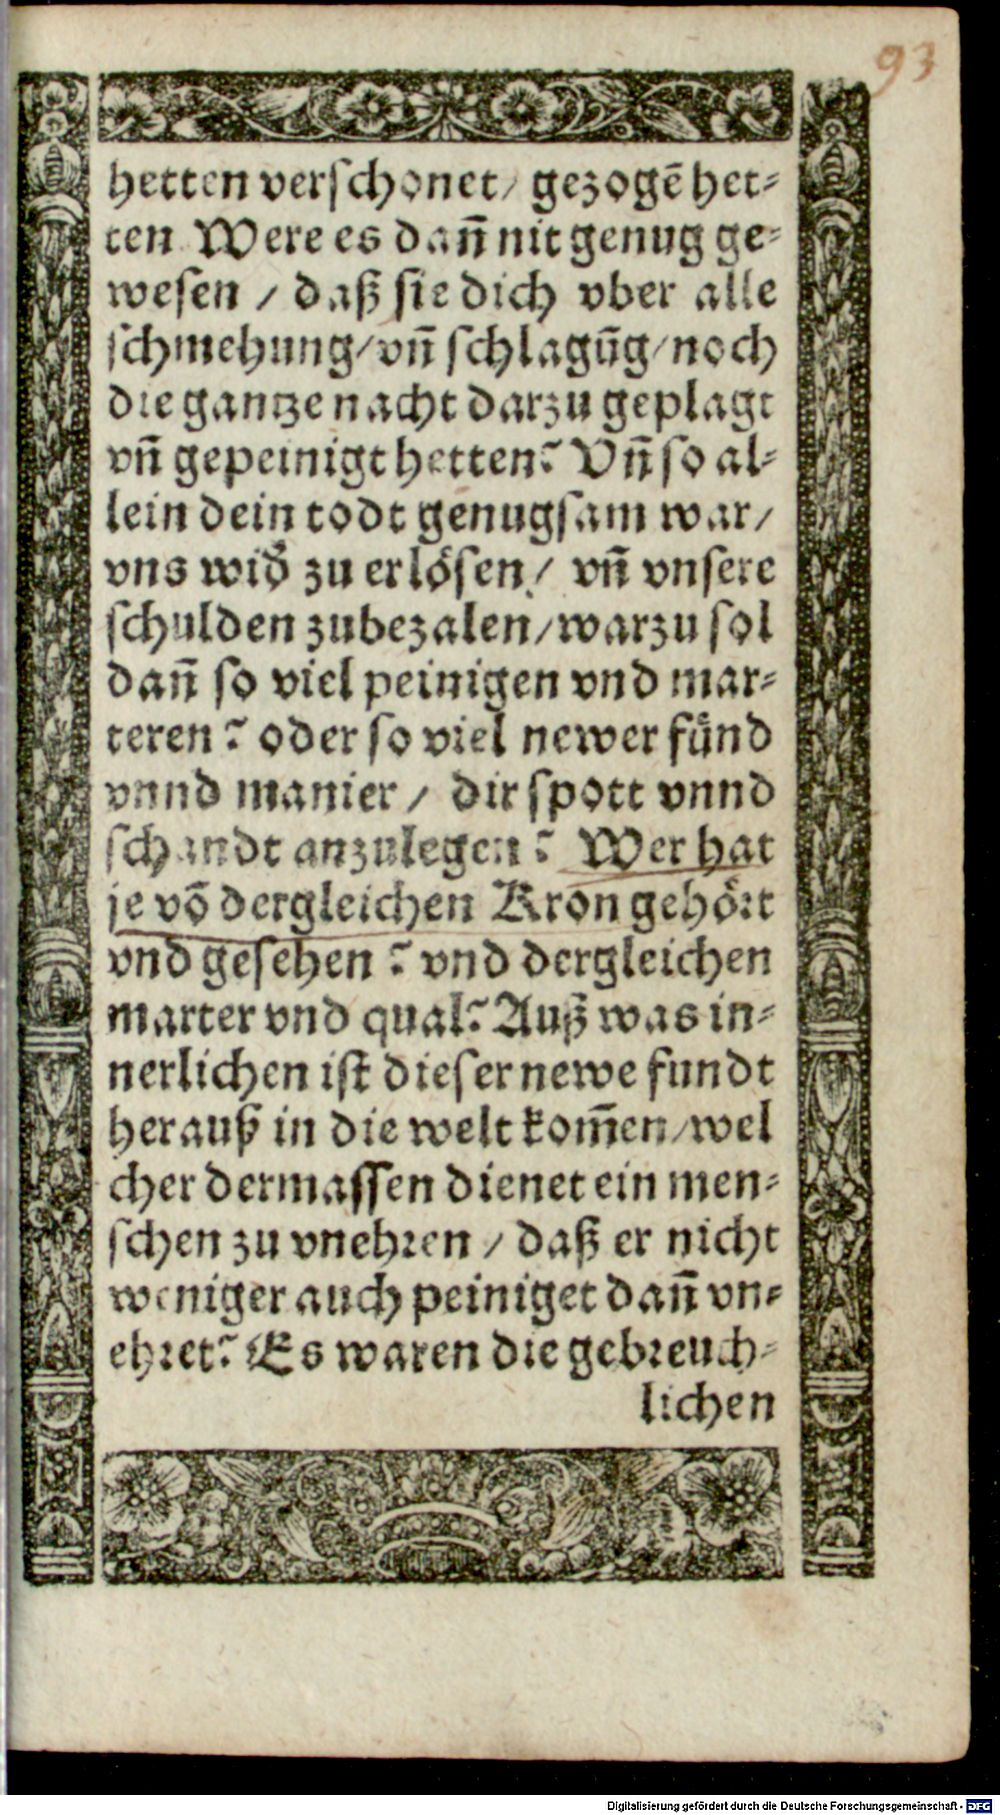 93
hetten verschonet/ gezogē het-
ten Were es dañ nit genug ge-
wesen / daß sie dich vber alle
schmehung/vñ schlagūg/noch
die gantze nacht darzu geplagt
vñ gepeinigt hetten? Vñ so al-
lein dein todt genugsam war/
vns wid̛ zu erlösen/ vñ vnsere
schulden zubezalen/warzu sol
dañ so viel peinigen vnd mar-
teren? oder so viel newer fünd
vnnd manier / dir spott vnnd
schandt anzulegen? Wer hat
je võ dergleichen Kron gehört
vnd gesehen? vnd dergleichen
marter vnd qual? Auß was in-
nerlichen ist dieser newe fundt
herauß in die welt kom̄en/wel
cher dermassen dienet ein men-
schen zu vnehren / daß er nicht
weniger auch peiniget dañ vn-
ehret? Es waren die gebreuch-
lichen
Digitalisierung gefördert durch die Deutsche Forschungsgemeinschaft - DFG